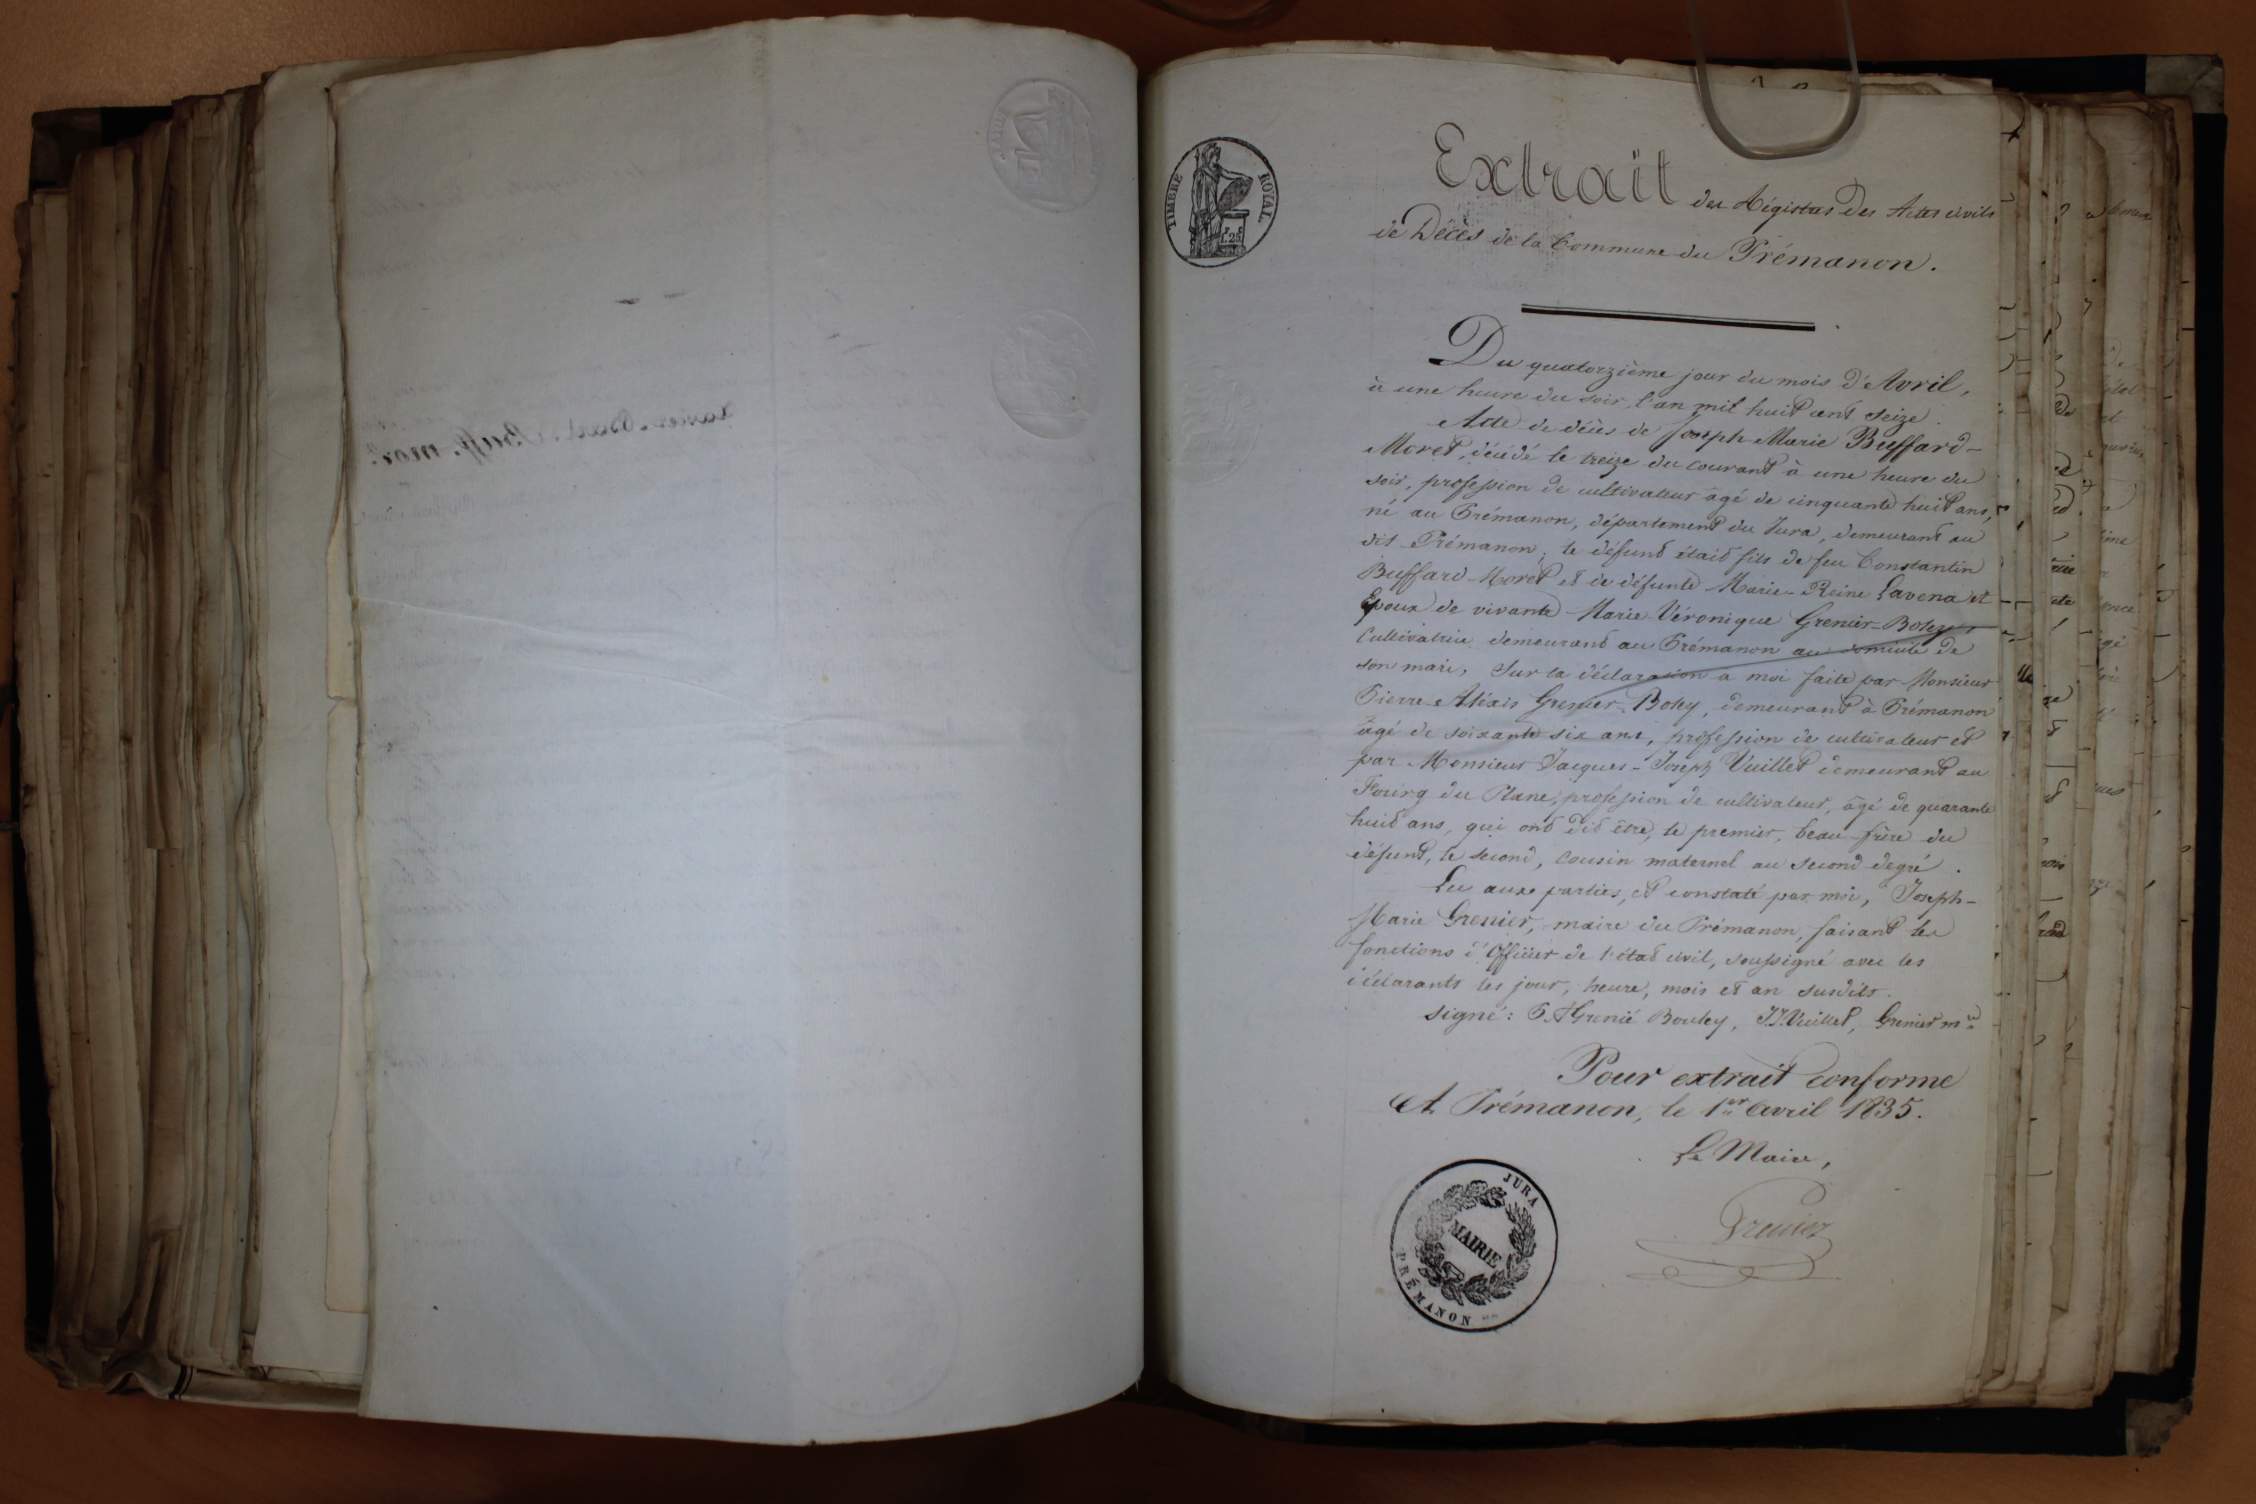 TIMBRE ROYAL
Extrait des Régistres des Actes civils
de Décès de la Commune du Prémanon.
Du quatorzième jour du mois d'Avril,
à une heure du soir, l'an mil huit cent seize.
Acte de décès de Joseph Marie Buffard-
Moret, décédé le treize du courant à une heure du
soir, profession de cultivateur âgé de cinquante huit ans,
né au Prémanon, département du Jura, demeurant au
dit Prémanon; le défunt était fils de feu Constantin
Buffard-Moret et de défunte Marie-Reine Lavena et
Epoux de vivante Marie Véronique Grenier-Boley
Cultivatrice demeurant au Prémanon au domicile de
son mari, Sur la déclaration à moi faite par Monsieur
Pierre Aléxis Grenier-Boley, demeurant à Prémanon
âgé de soixante six ans, profession de cultivateur et
par Monsieur Jacques-Joseph Vuillet demeurant au
Fourg du Plane, profession de cultivateur, âgé de quarante
huit ans, qui ont dit être, le premier, beau-frère du
défunt, le second, cousin maternel au second degré.
Lu aux parties, et constaté par moi, Joseph-
Marie Grenier, maire du Prémanon, faisant les
fonctions d'Officier de l'état civil, soussigné avec les
déclarants les jour, heure, mois et an susdits.
signé: P. A Grenié Bouley, J.J. Vuillet, Grenier m.re
Pour extrait conforme
A Prémanon, le 1er Avril 1835.
Le Maire,
Grenier
JURA
MAIRIE
PRÉMANON